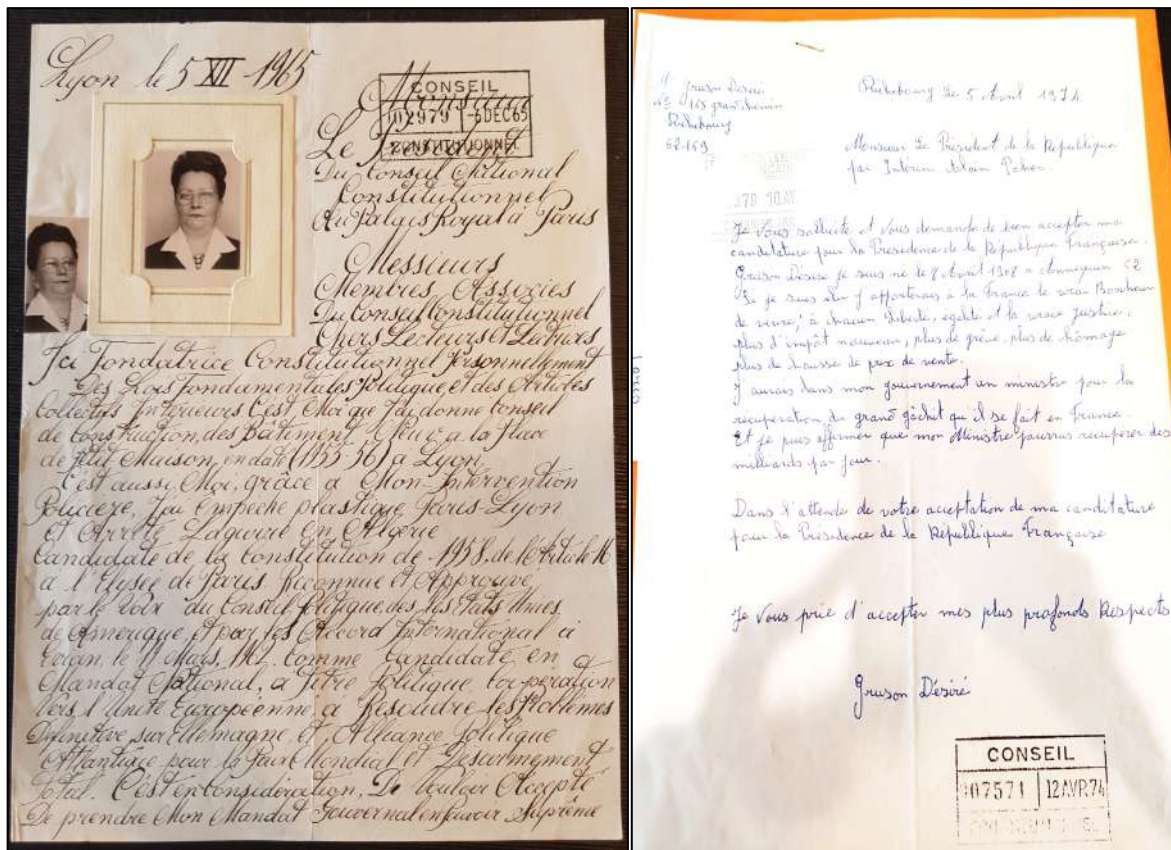 Lyon le 5 XII 1965
CONSEIL
002979 -6DEC65
CONSTITUTIONNEL
Monsieur
Le President
Du Conseil National
Constitutionnel
Au Palais Royal à Paris
Messieurs
Membres, Associés
Du Conseil Constitutionnel
Chers Lecteurs et Lectrices
Ici Fondatrice Constitutionnel Personnellement
Des Lois Fondamentales Politique, et des Articles
Collectifs Interieurs. C'est, Moi que J'ai donne Conseil
de Construction, des Bâtiment Neuv a la Place
de Petit Maison, en date (1955-56) a Lyon
C'est aussi, Moi, grâce a Mon Intervention
Policiere, J'ai Empeche plastique, Paris-Lyon
et Arrêté Laguere en Algerie
Candidate de la Constitution de 1958, de l'Article 16
a l'Elysée de Paris Reconnue et Approuve
par le Voir du Conseil Politique, des Etats Unies,
de Amerique, et par les Accord International à
Evian, le Mars, 1962. Comme Candidate en
Mandat National, a Titre Politique,
Vers l'Unité Européenne, a Resoudre les Problemes
Definitive sur Allemagne, et Alleance Politique
Atlantique pour la Paix Mondial et Desarmament
Total. C'est en considération, De Vouloir Accepté
De prendre Mon Mandat Gouvernal en Pouvoir Suprême
Gruson Désiré
No 163 grand chemin
Richebourg
62-169
Richebourg Le 5 Avril 1974
Monsieur Le Président de la République
par Interim Alain Poher.
Je Vous sollicite et Vous demande de bien accepter ma
candidature pour la Présidence de la République Française.
Gruson Désiré je suis né le 8 Avril 1908 a Annequin 62
Si je suis élu j'apporterais à la France le vrai Bonheur
de vivre, à chacun Liberté, égalité et la vraie justice,
plus d'impôt nouveau, plus de grève, plus de chômage
plus de hausse de prix de vente.
J'aurais dans mon gouvernement un ministre pour la
recuperation du grand gâchit qu'il se fait en France.
Et je puis affirmer que mon Ministre pourrais recupérer des
milliards par jour.
Dans l'attende de votre acceptation de ma canditature
pour la Présidence de la République Française
Je Vous prie d'accepter mes plus profonds Respects
Gruson Désiré
CONSEIL
007571 12AVR.74